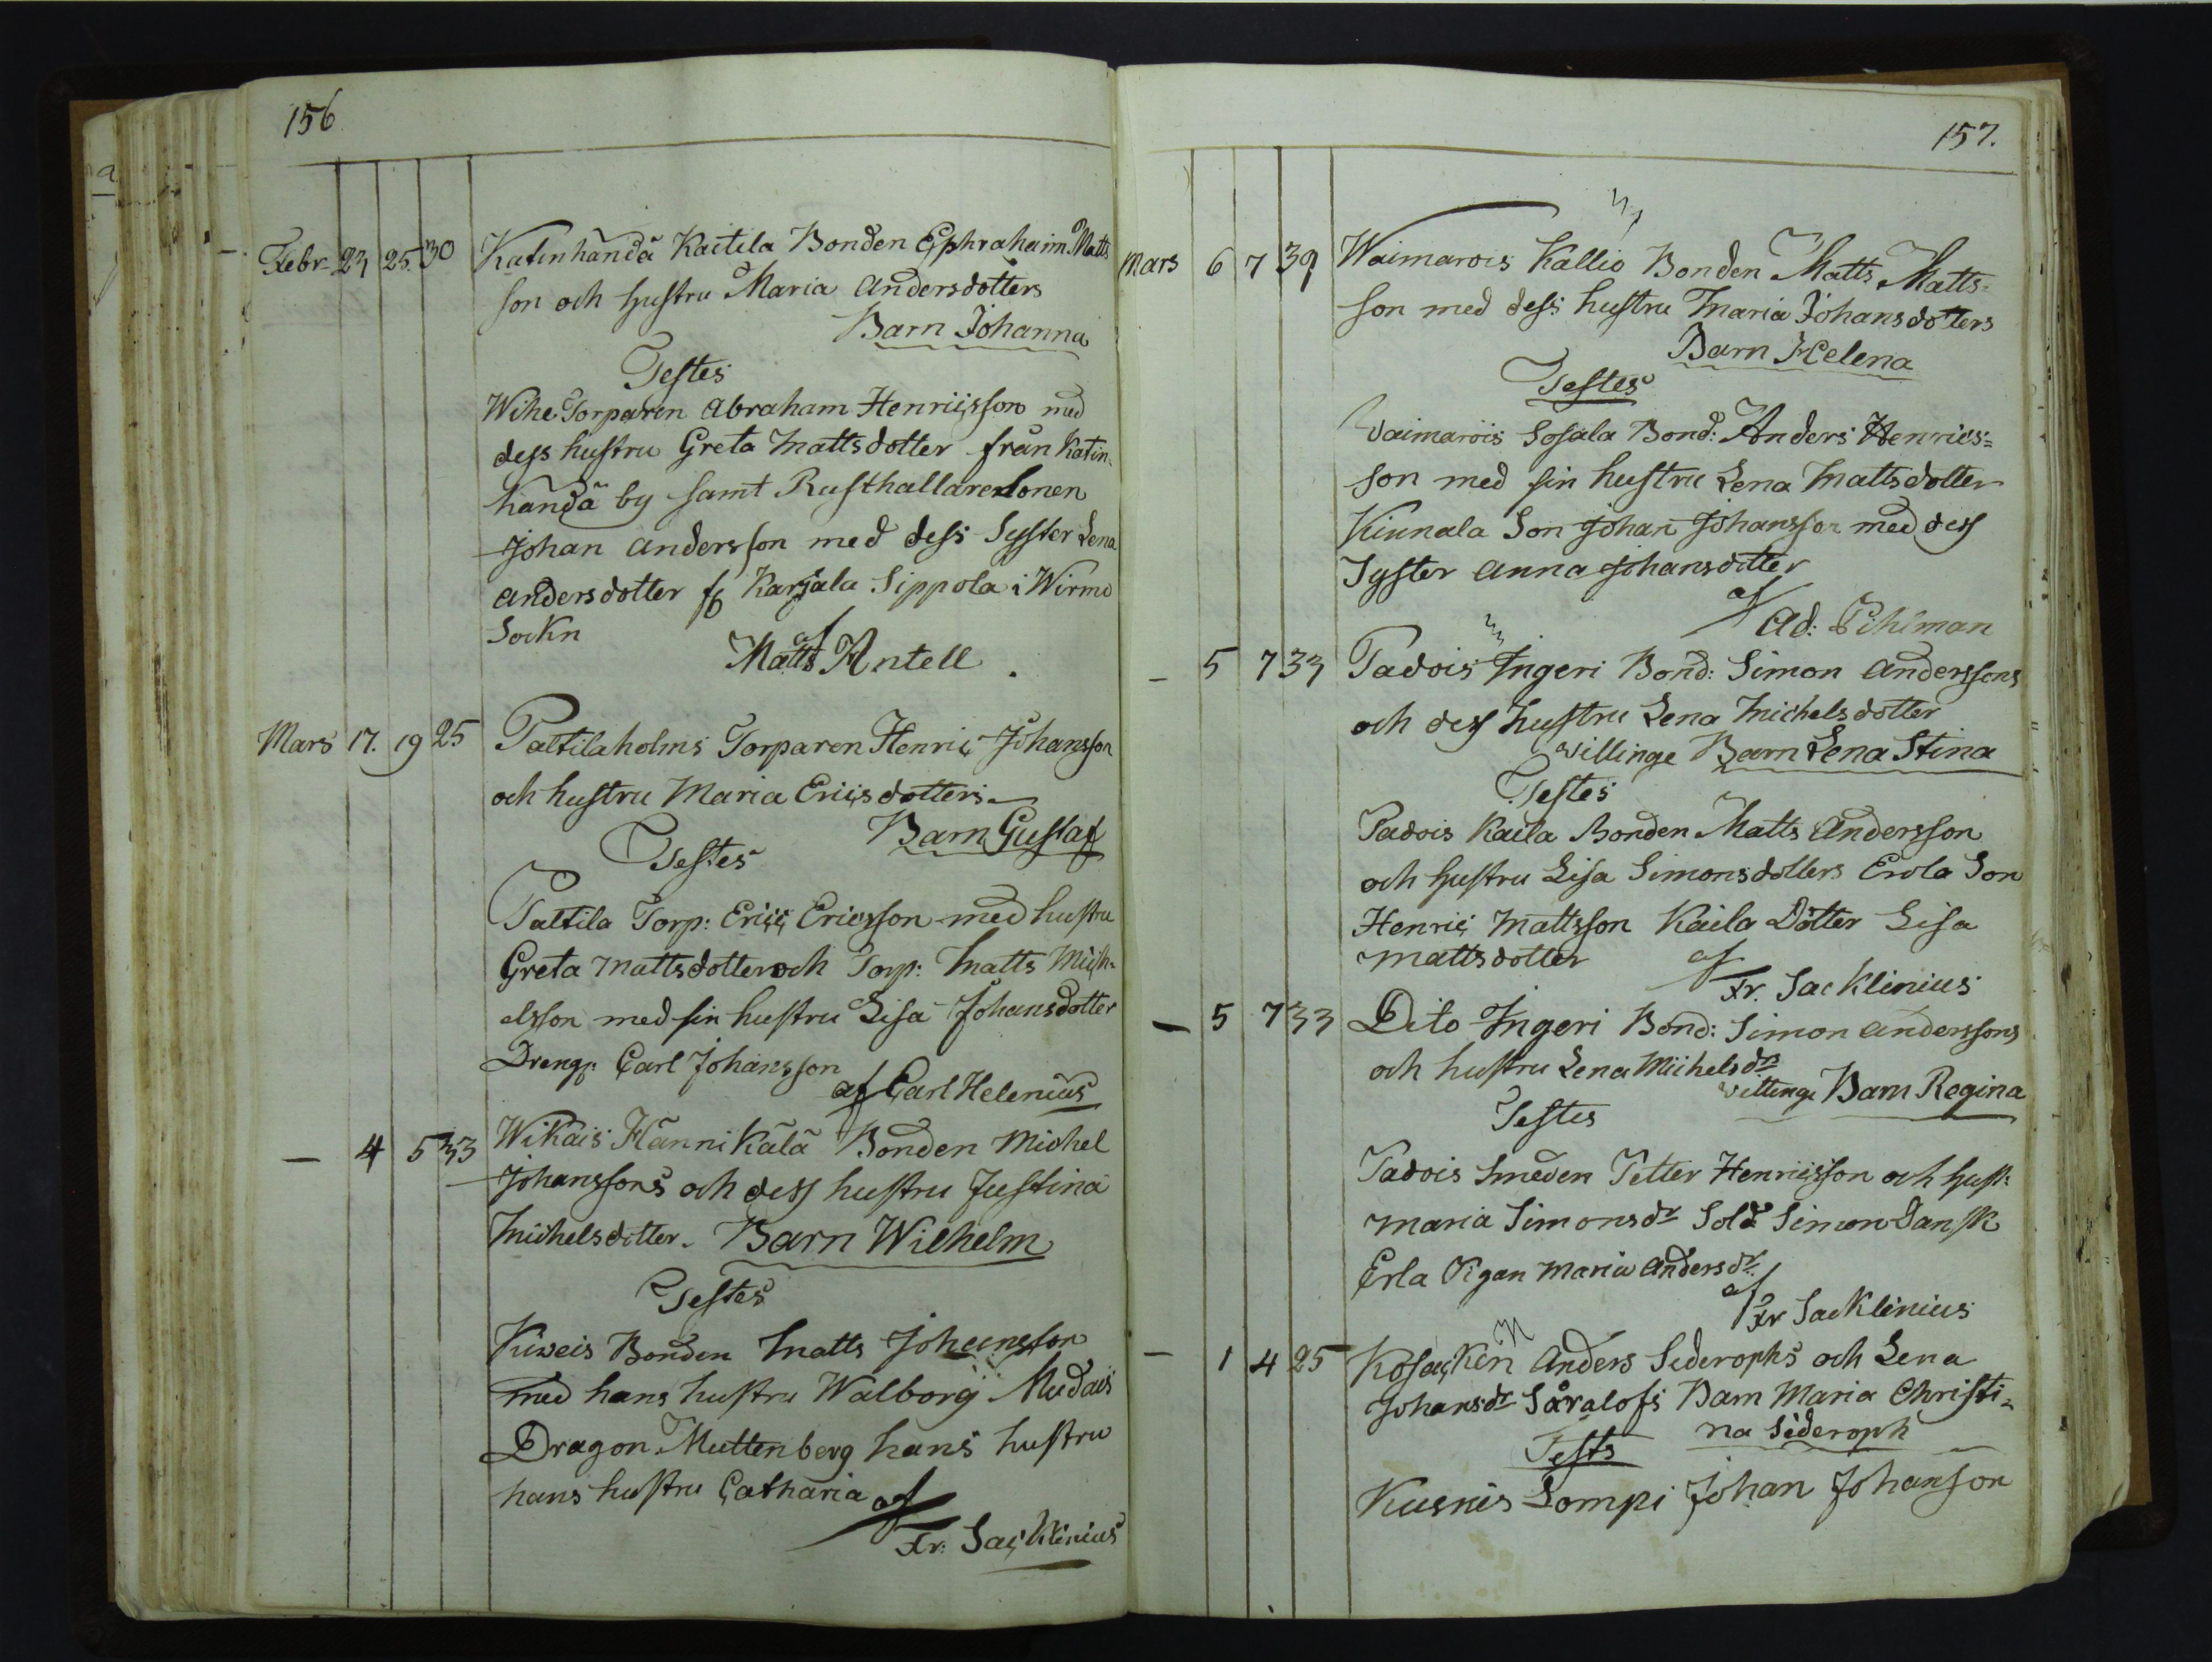 156
Febr 23 25. 30 Katinhändä Kaitila Bonden Ephraheim Matts
son och hustru Maria Andersdotters
Barn Johanna
Testes
Wihe Torparen Abraham Henricsson med
dess hustru Greta Mattsdotter från Katin-
händä by samt Rusthallare Sonen
Johan Andersson med dess Syster Lena
Andersdotter Karjala Sippola i Wirmo
Sockn af
Matts Antell
Mars 17. 19 25 Paltilaholms Torparen Henric Johansson
och hustru Maria Ericsdotters
Barn Gustaf
Testes
Paltila Torp: Eric Ericsson med hustru
Greta Mattsdotter och Torp: Matts Mich-
elsson med sin hustru Lisa Johansdotter
Dreng: Carl Johansson
af Carl Helenius
— 4 5 33 Wikais Hännikälä Bonden Michel
Johanssons och dess hustru Justina
Michelsdotter. Barn Wilhelm
Testes
Kiweis Bonden Matts Johansson
med hans hustru Walborg Mudais
Dragon Muttenberg hans hustru
hans hustru Catharia af
Fr: Sacklinius
157.
Mars 6 7 39 Waimarois Kallio Bonden Matts Matts-
son med dess hustru Maria Johansdotters
Barn Helena
Testes
Vaimarois Sosala Bond: Anders Henrics=
son med sin hustru Lena Mattsdotter
Kiunala Son Johan Johansson med dess
Syster Anna Johansdotter
af
Ad: Pihlman
— 5 7 33 Tadois Ingeri Bond: Simon Anderssons
och dess hustru Lena Michelsdotter
villinge Barn Lena Stina
Testes
Tadois Kaila Bonden Matts Andersson
och hustru Lisa Simonsdotters Erola Son
Henric Mattsson Kaila Dotter Lisa
Mattsdotter af
Fr. Sacklinius
— 5 7 33 Dito Ingeri Bond: Simon Anderssons
och hustru Lena Michelsdrs
villinge Barn Regina
Testes
Tadois Smeden Petter Henricsson och hust:
Maria Simonsdr Sold Simon Dansk
Erla Pigan Maria Andersdr
af
Fr Sacklinius
— 1 4 25 Kosacken Anders Sederophs och Lena
Johansdr Såralofs Barn Maria Christi-
na Sederoph
Tests
Kusnis Lompi Johan Johanson